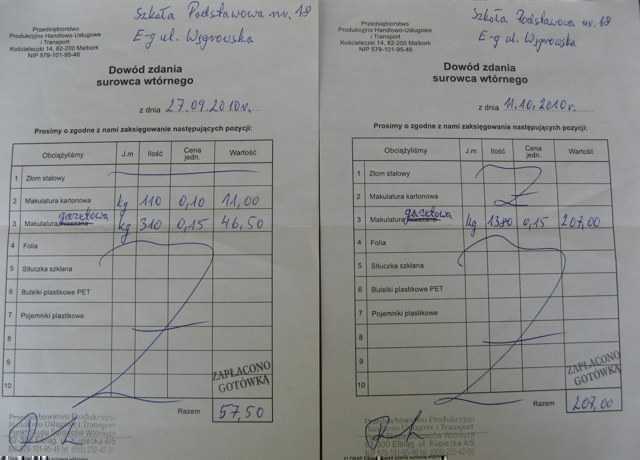 Szkoła Podstawowa nr. 18
E-g ul. Węgrowska
Przedsiębiorstwo
Produkcyjno Handlowo-Usługowe
i Transport
Kościeleczki 14, 82-200 Malbork
NIP 579-101-95-46
Dowód zdania
surowca wtórnego
z dnia 27.09.2010r.
Prosimy o zgodne z nami zaksięgowanie następujących pozycji:
Obciążyliśmy J.m Ilość Cena jedn. Wartość
1 Złom stalowy
2 Makulatura kartonowa kg 110 0,10 11,00
3 Makulatura gazetowa kg 310 0,15 46,50
4 Folia
5 Stłuczka szklana
6 Butelki plastikowe PET
7 Pojemniki plastikowe
8
9
10
ZAPŁACONO
GOTÓWKĄ
Razem 57,50
Szkoła Podstawowa nr. 18
E-g ul. Węgrowska
Przedsiębiorstwo
Produkcyjno Handlowo-Usługowe
i Transport
Kościeleczki 14, 82-200 Malbork
NIP 579-101-95-46
Dowód zdania
surowca wtórnego
z dnia 11.10.2010r.
Prosimy o zgodne z nami zaksięgowanie następujących pozycji:
Obciążyliśmy J.m Ilość Cena jedn. Wartość
1 Złom stalowy
2 Makulatura kartonowa
3 Makulatura gazetowa kg 1380 0,15 207,00
4 Folia
5 Stłuczka szklana
6 Butelki plastikowe PET
7 Pojemniki plastikowe
8
9
10
ZAPŁACONO
GOTÓWKĄ
Razem 207,00